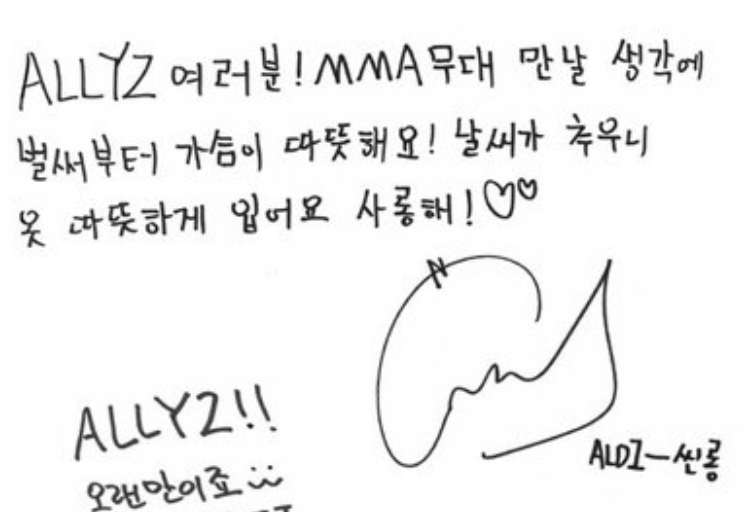 ALLYZ 여러분! MMA 무대 만날 생각에
벌써부터 가슴이 따뜻해요! 날씨가 추우니
옷 따뜻하게 입어요 사롱해!♡♡
ALD1-씬롱
ALLYZ!!
오랜만이죠